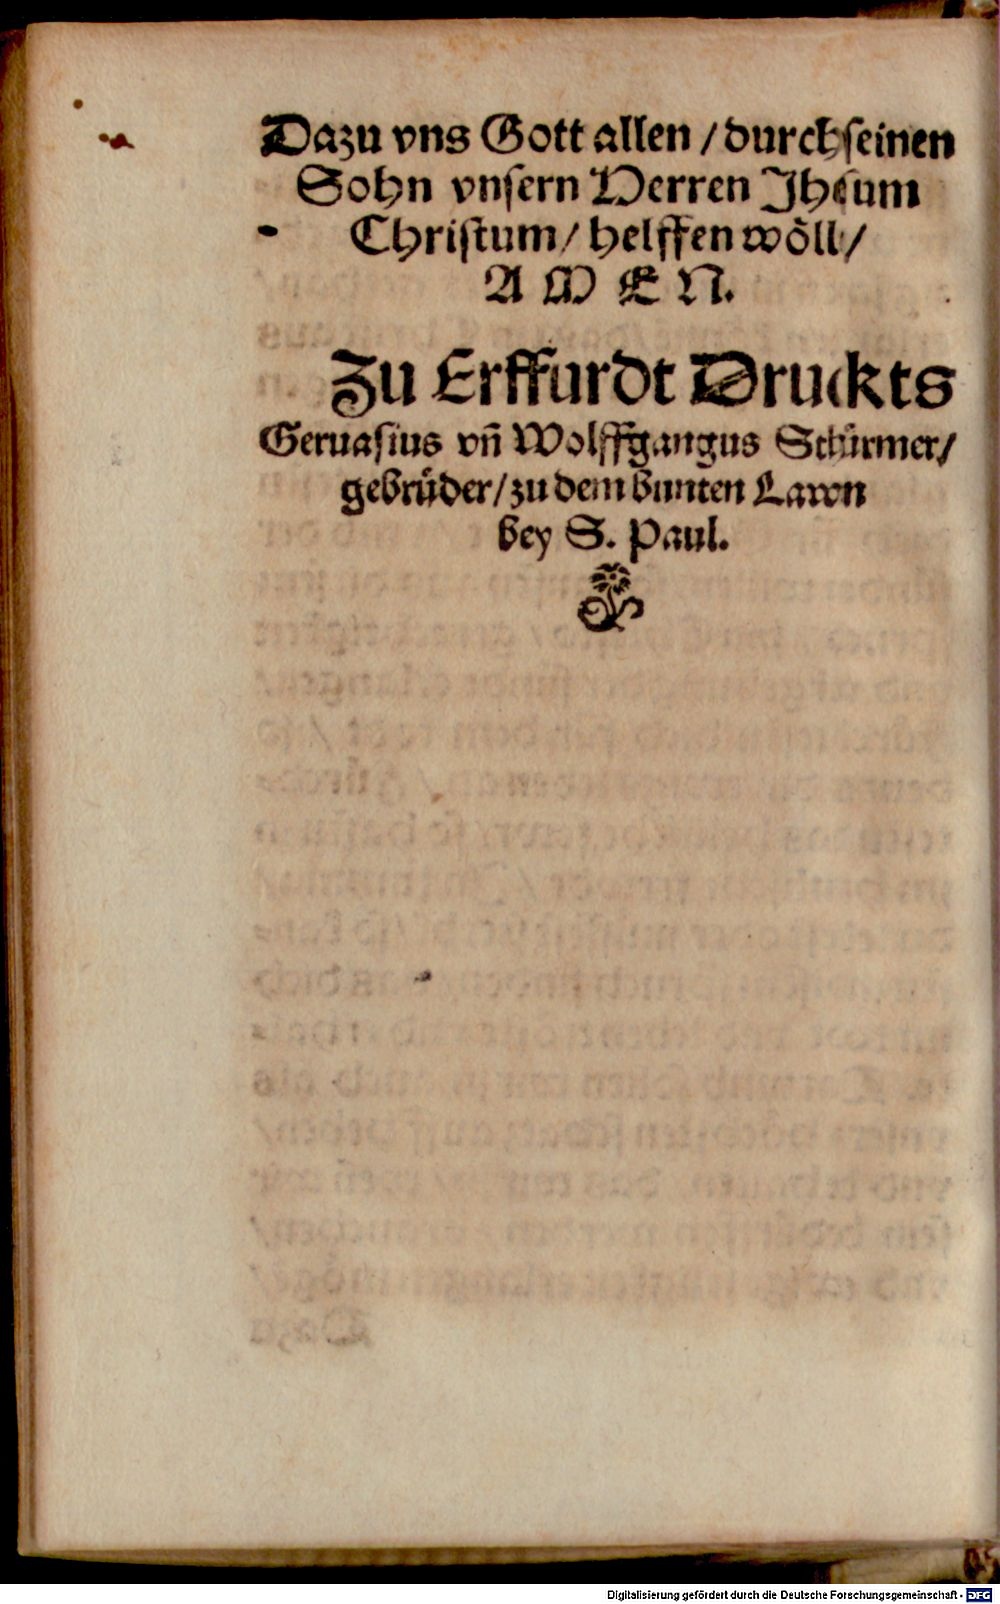 Dazu vns Gott allen / durch seinen
Sohn vnsern Herren Jhesum
Christum / helffen wöll /
A M E N.
Zu Erffurdt Druckts
Geruasius vñ Wolffgangus Schürmer /
gebrüder / zu dem bunten Lawn
bey S. Paul.
Digitalisierung gefördert durch die Deutsche Forschungsgemeinschaft - DFG